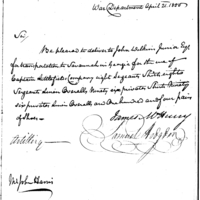 War Department April 21. 1800
Sir,
Be pleased to deliver to John Wilkins Junior Esqr
for transportation to Savannah in Georgia for the use of
Captain Littlefields Company eight Sergeants Shirts eighty
Sergeants Linen Overalls Ninety six privates Shirts Ninety
six privates Linen Overalls and One hundred and four pairs
of Shoes.
James McHenry
Samuel Hodgdon
Mr John Harris